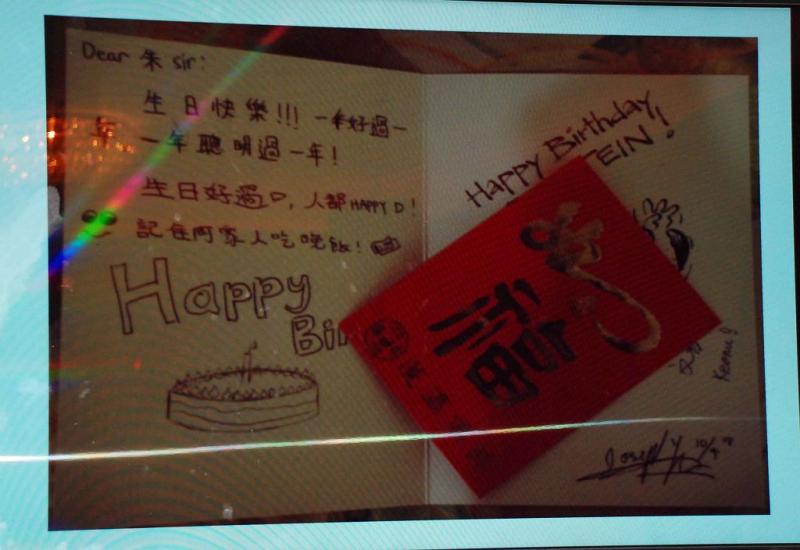 Dear 朱 sir:
生日快樂!!! 一年好過一
年 一年聰明過一年!
生日好過D, 人都HAPPY D!
記住同家人吃晚飯!
Happy
Bir
Happy Birthday
TEIN!
Kennu!
Joseph Yu 10/9